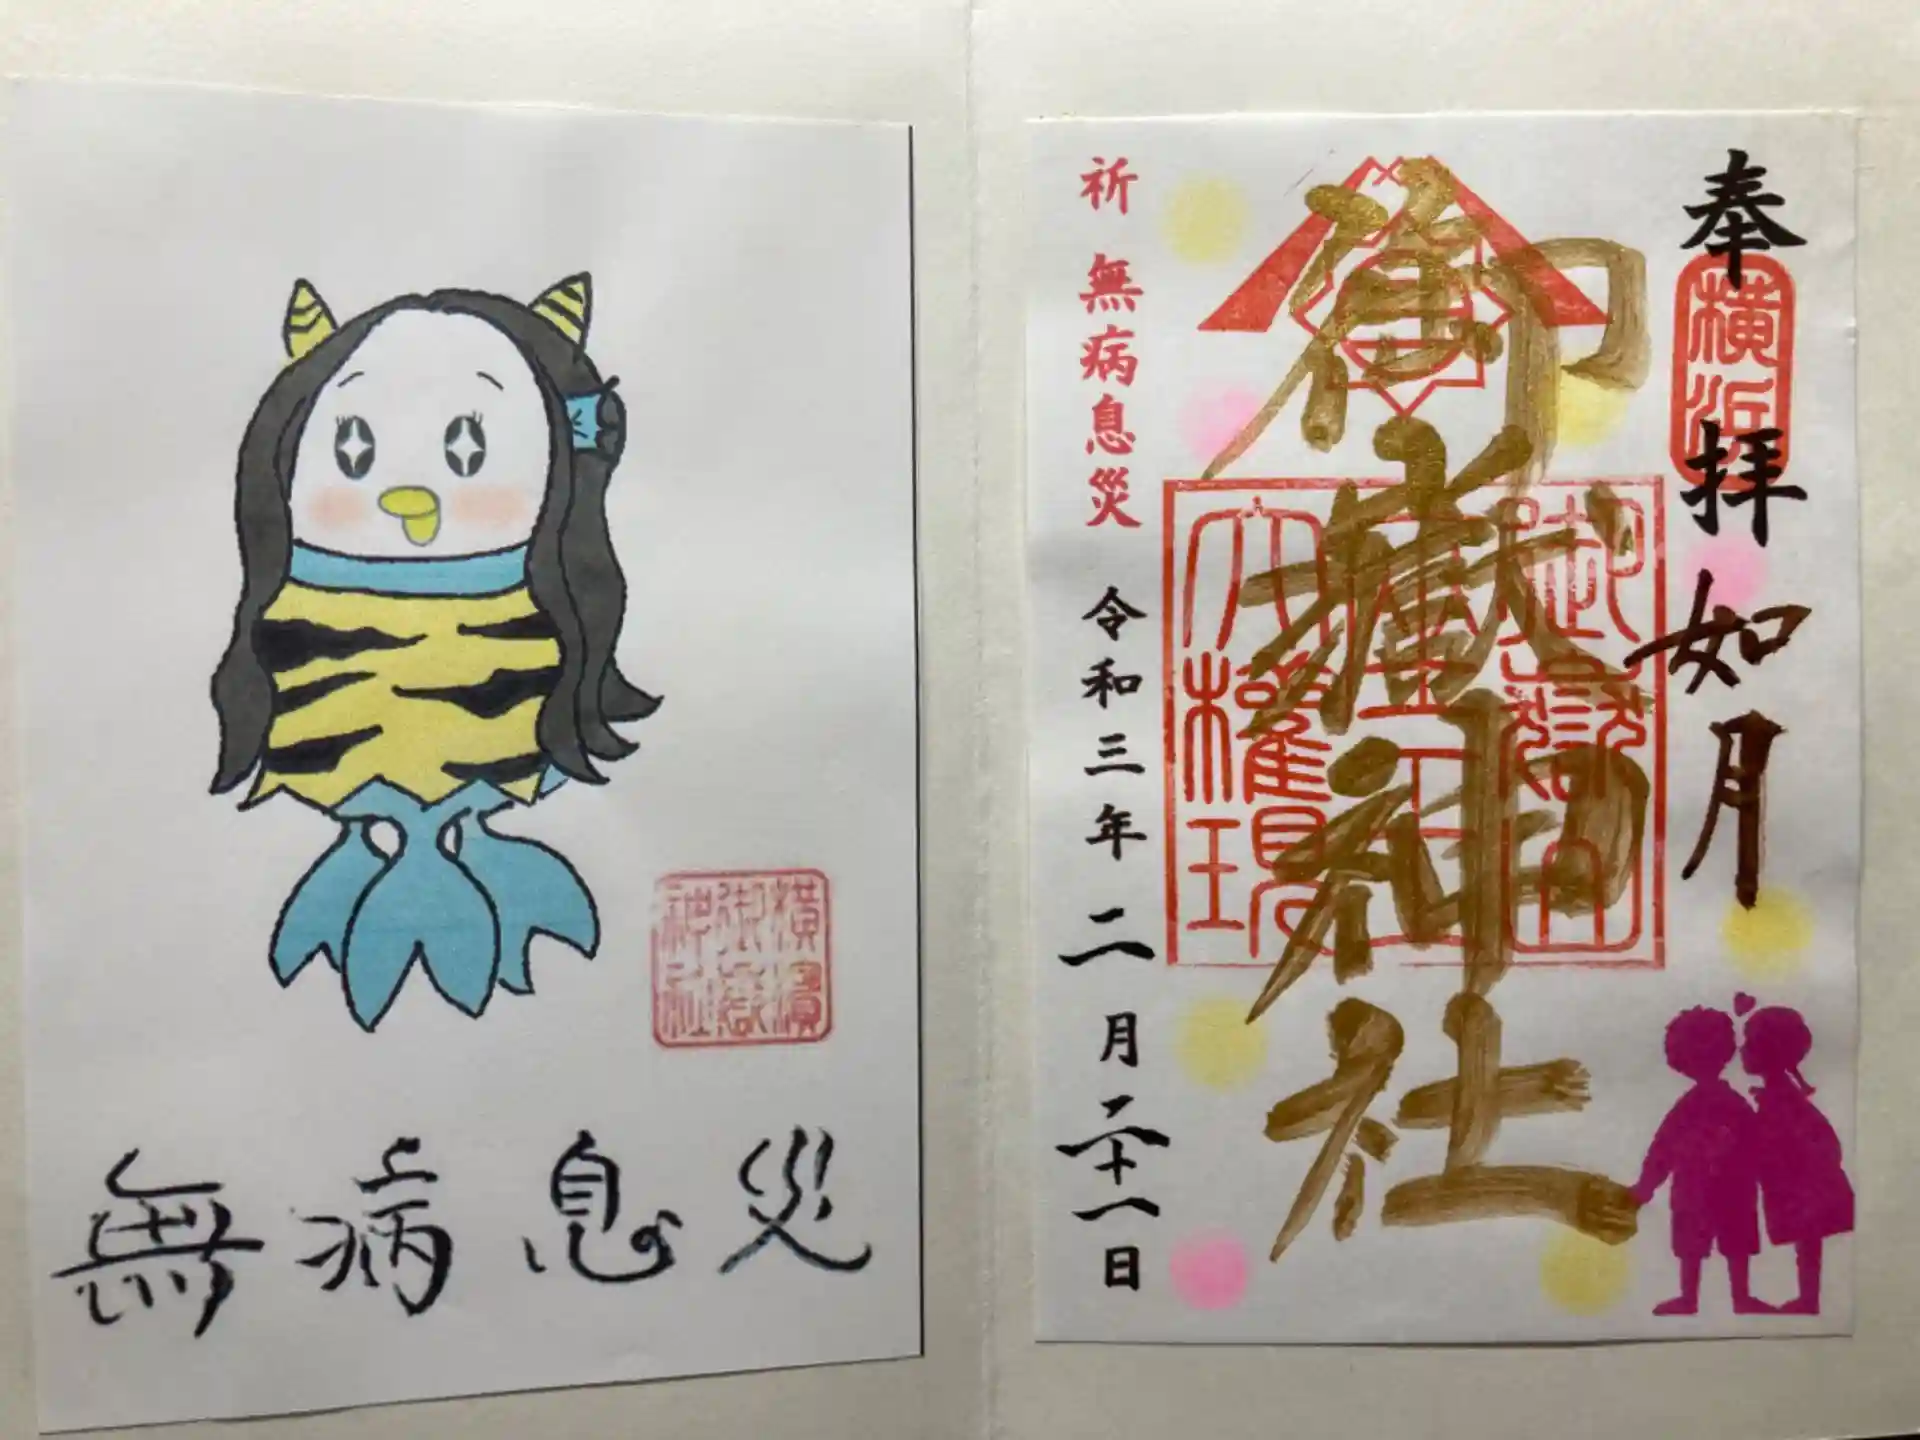 奉拝
横浜
如月
御嶽神社
御嶽山
蔵王
大権現
祈 無病息災
令和三年二月二十一日
横濱
御嶽
神社
無病息災